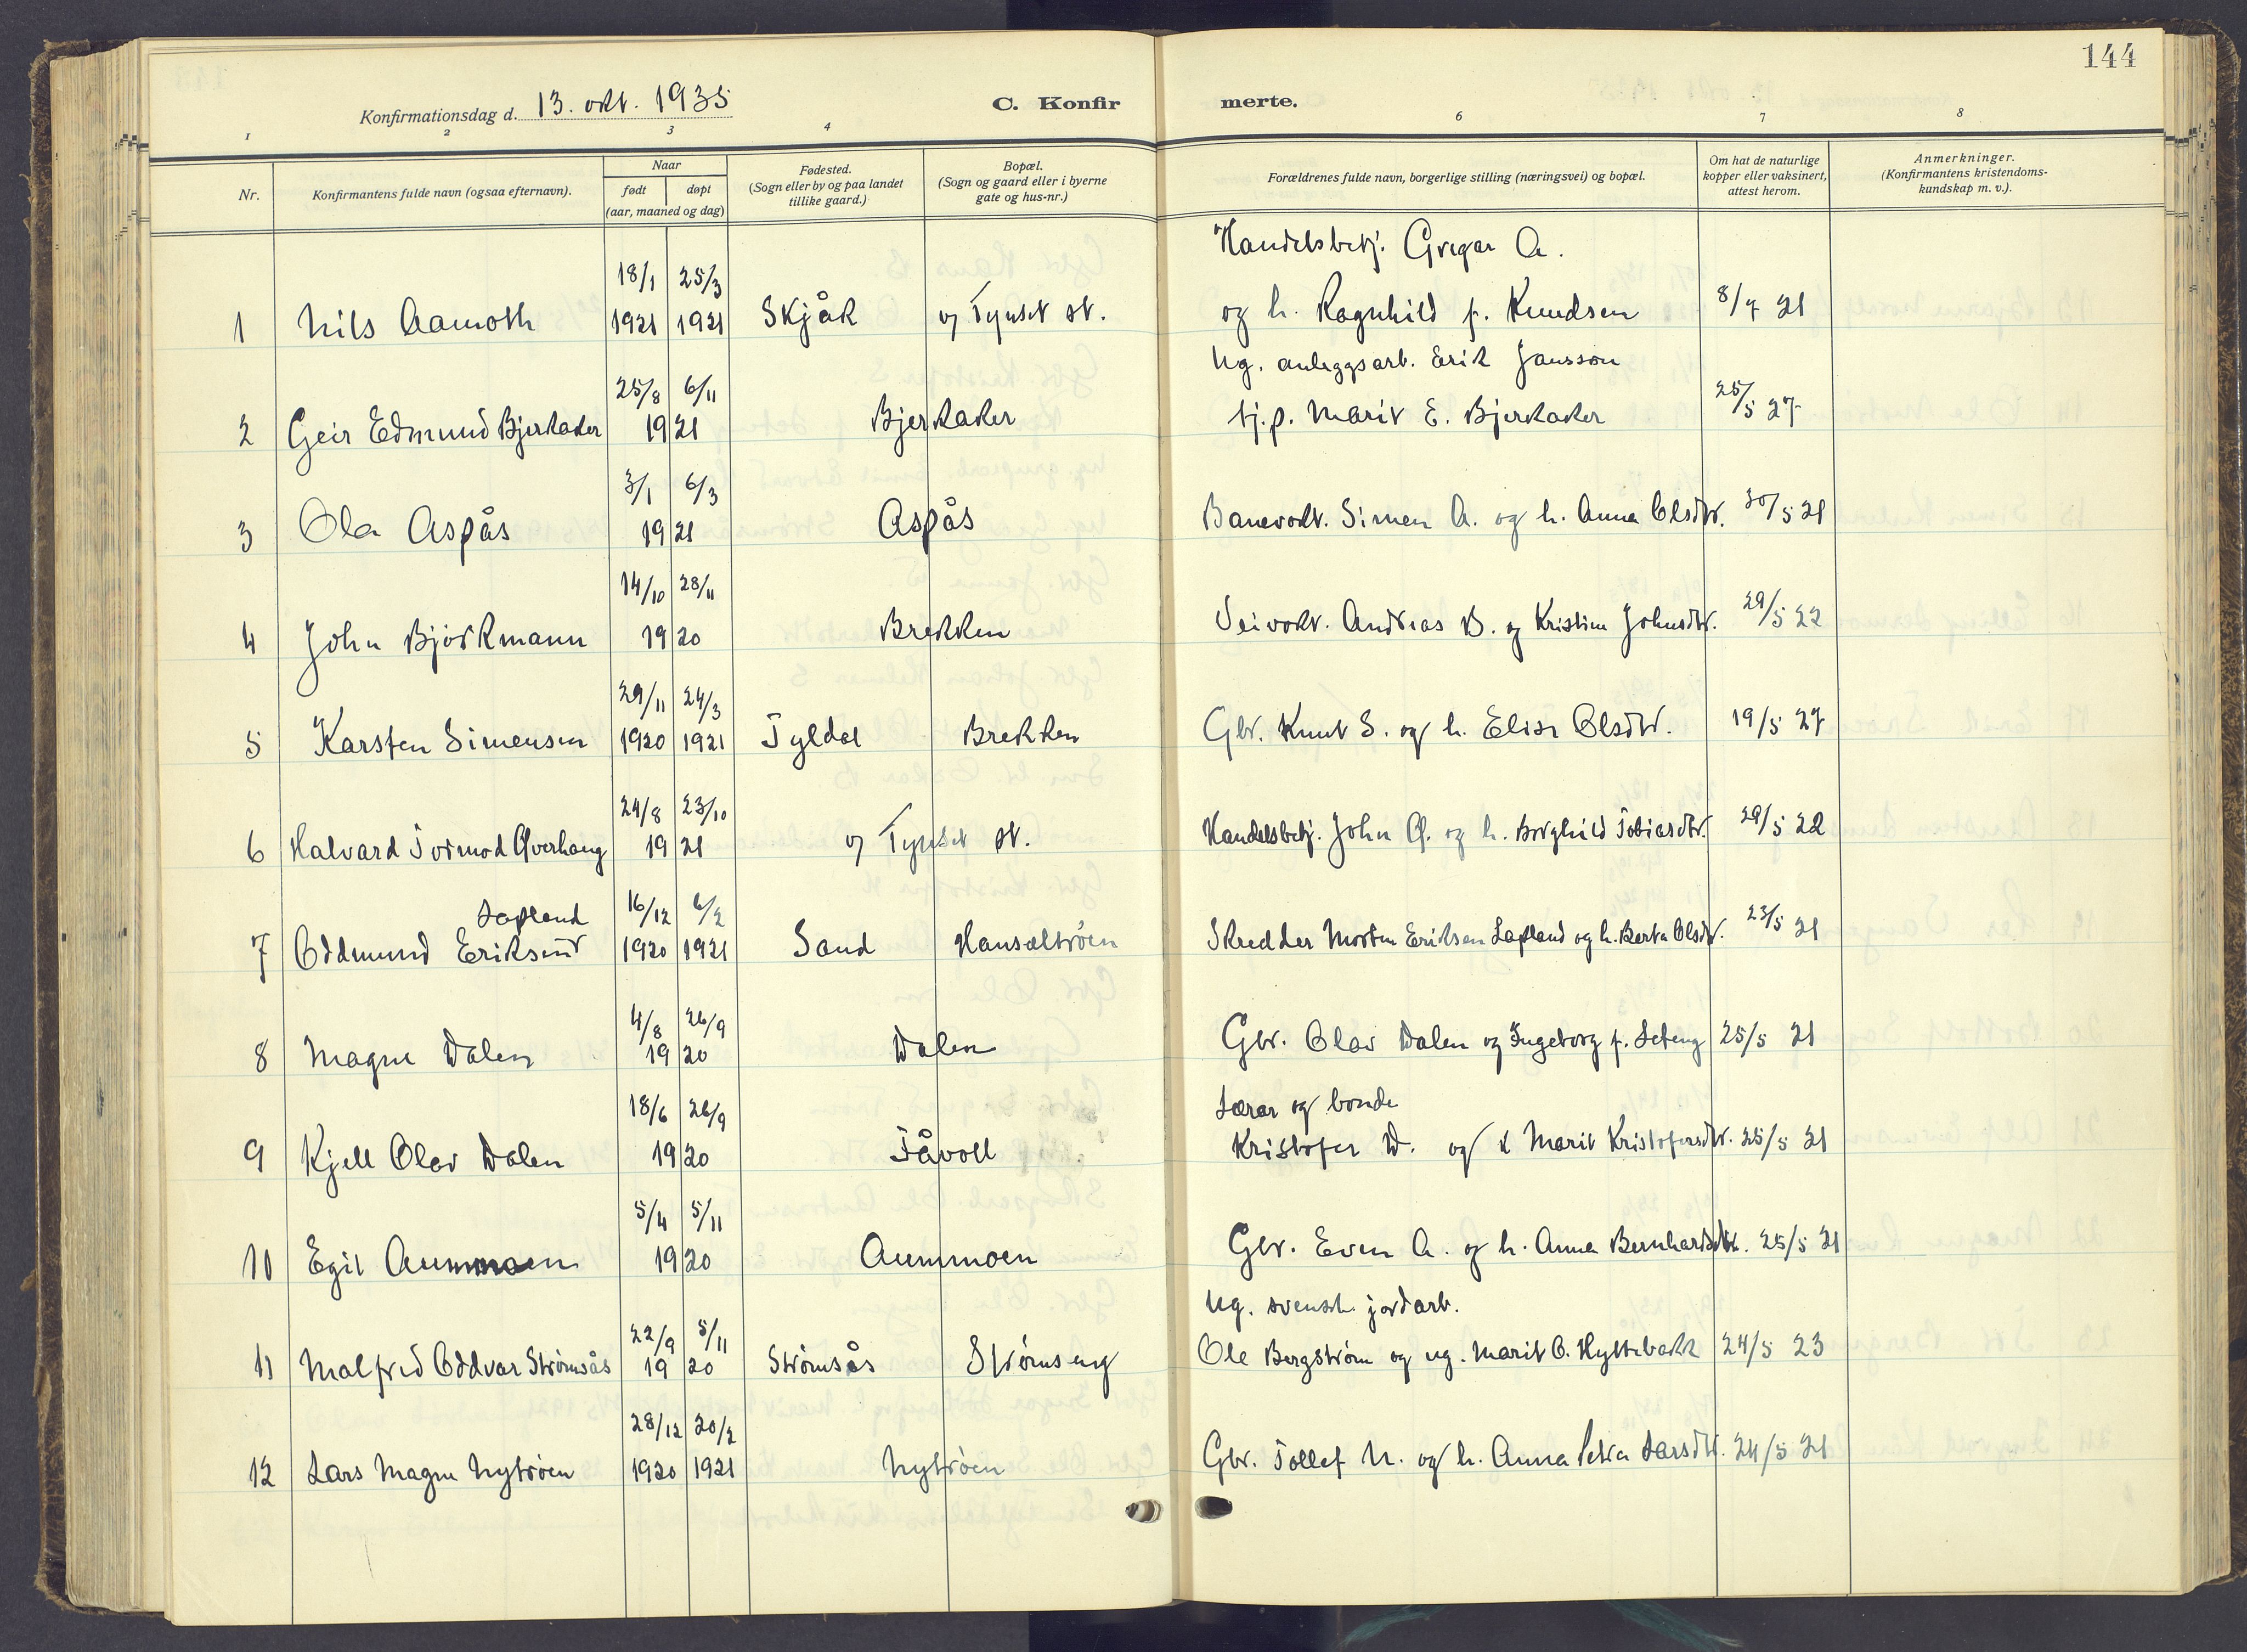 144
Konfirmationsdag d. 13. okt. 1935 C. Konfirmerte.
1 2 3 4 6 7 8
Nr. Konfirmantens fulde navn (ogsaa efternavn). Naar født døpt (aar, maaned og dag) Fødested. (Sogn eller by og paa landet tillike gaard.) Bopæl. (Sogn og gaard eller i byerne gate og hus-nr.) Forældrenes fulde navn, borgerlige stilling (næringsvei) og bopæl. Om hat de naturlige kopper eller vaksinert, attest herom. Anmerkninger. (Konfirmantens kristendoms-kundskap m. v.).
18/1 25/3 Handelsbetj. Gregar A.
1 Nils Aamoth 1921 1921 Skjåk Tynset st. og h. Ragnhild f. Knudsen 8/7 21
25/8 6/11 Ug. anleggsarb. Erik Jansson
2 Geir Edmund Bjerkaker 1921 Bjerkaker tj.p. Marit E. Bjerkaker 25/5 27
3/1 6/3
3 Ola Aspås 1921 Aspås Banevokt. Simen A. og h. Anna Olsdtr. 30/5 21
14/10 28/11
4 John Björkmann 1920 Brekken Veivokt. Andreas B. og Kristine Johnsdtr. 29/5 22
29/11 24/3
5 Karsten Simensen 1920 1921 Tyldal Brekken Gbr. Knut S. og h. Elise Olsdtr. 19/5 27
24/8 23/10
6 Halvard Tormod Qverhaug 1921 Tynset st. Handelsbetj. John Q. og h. Borghild Tobiasdtr. 29/5 22
Lapland 16/12 6/2
7 Oddmund Eriksen 1920 1921 Sand Hansæltrøen Skredder Morten Eriksen Lapland og h. Berta Olsdtr. 23/5 21
4/8 26/9
8 Magne Dalen 1920 Dalen Gbr. Olav Dalen og Ingeborg f. Leteng 25/5 21
18/6 26/9 Lærar og bonde
9 Kjell Olav Dalen 1920 Tåvoll Kristofer D. og k Marit Kristofersdtr. 25/5 21
5/4 5/11
10 Egil Aummoen 1920 Aummoen Gbr. Even A. og h. Anna Bernhardsdtr. 25/5 21
22/9 5/11 Ug. svensk jordarb.
11 Malfred Oddvar Strømsås 1920 Strømsås Strømseng Ole Bergstrøm og ug. Marit O. Hyttebakk 24/5 23
28/12 20/2
12 Lars Magne Nytrøen 1920 1921 Nytrøen Gbr. Tollef N. og h. Anna Petra Larsdtr. 24/5 21